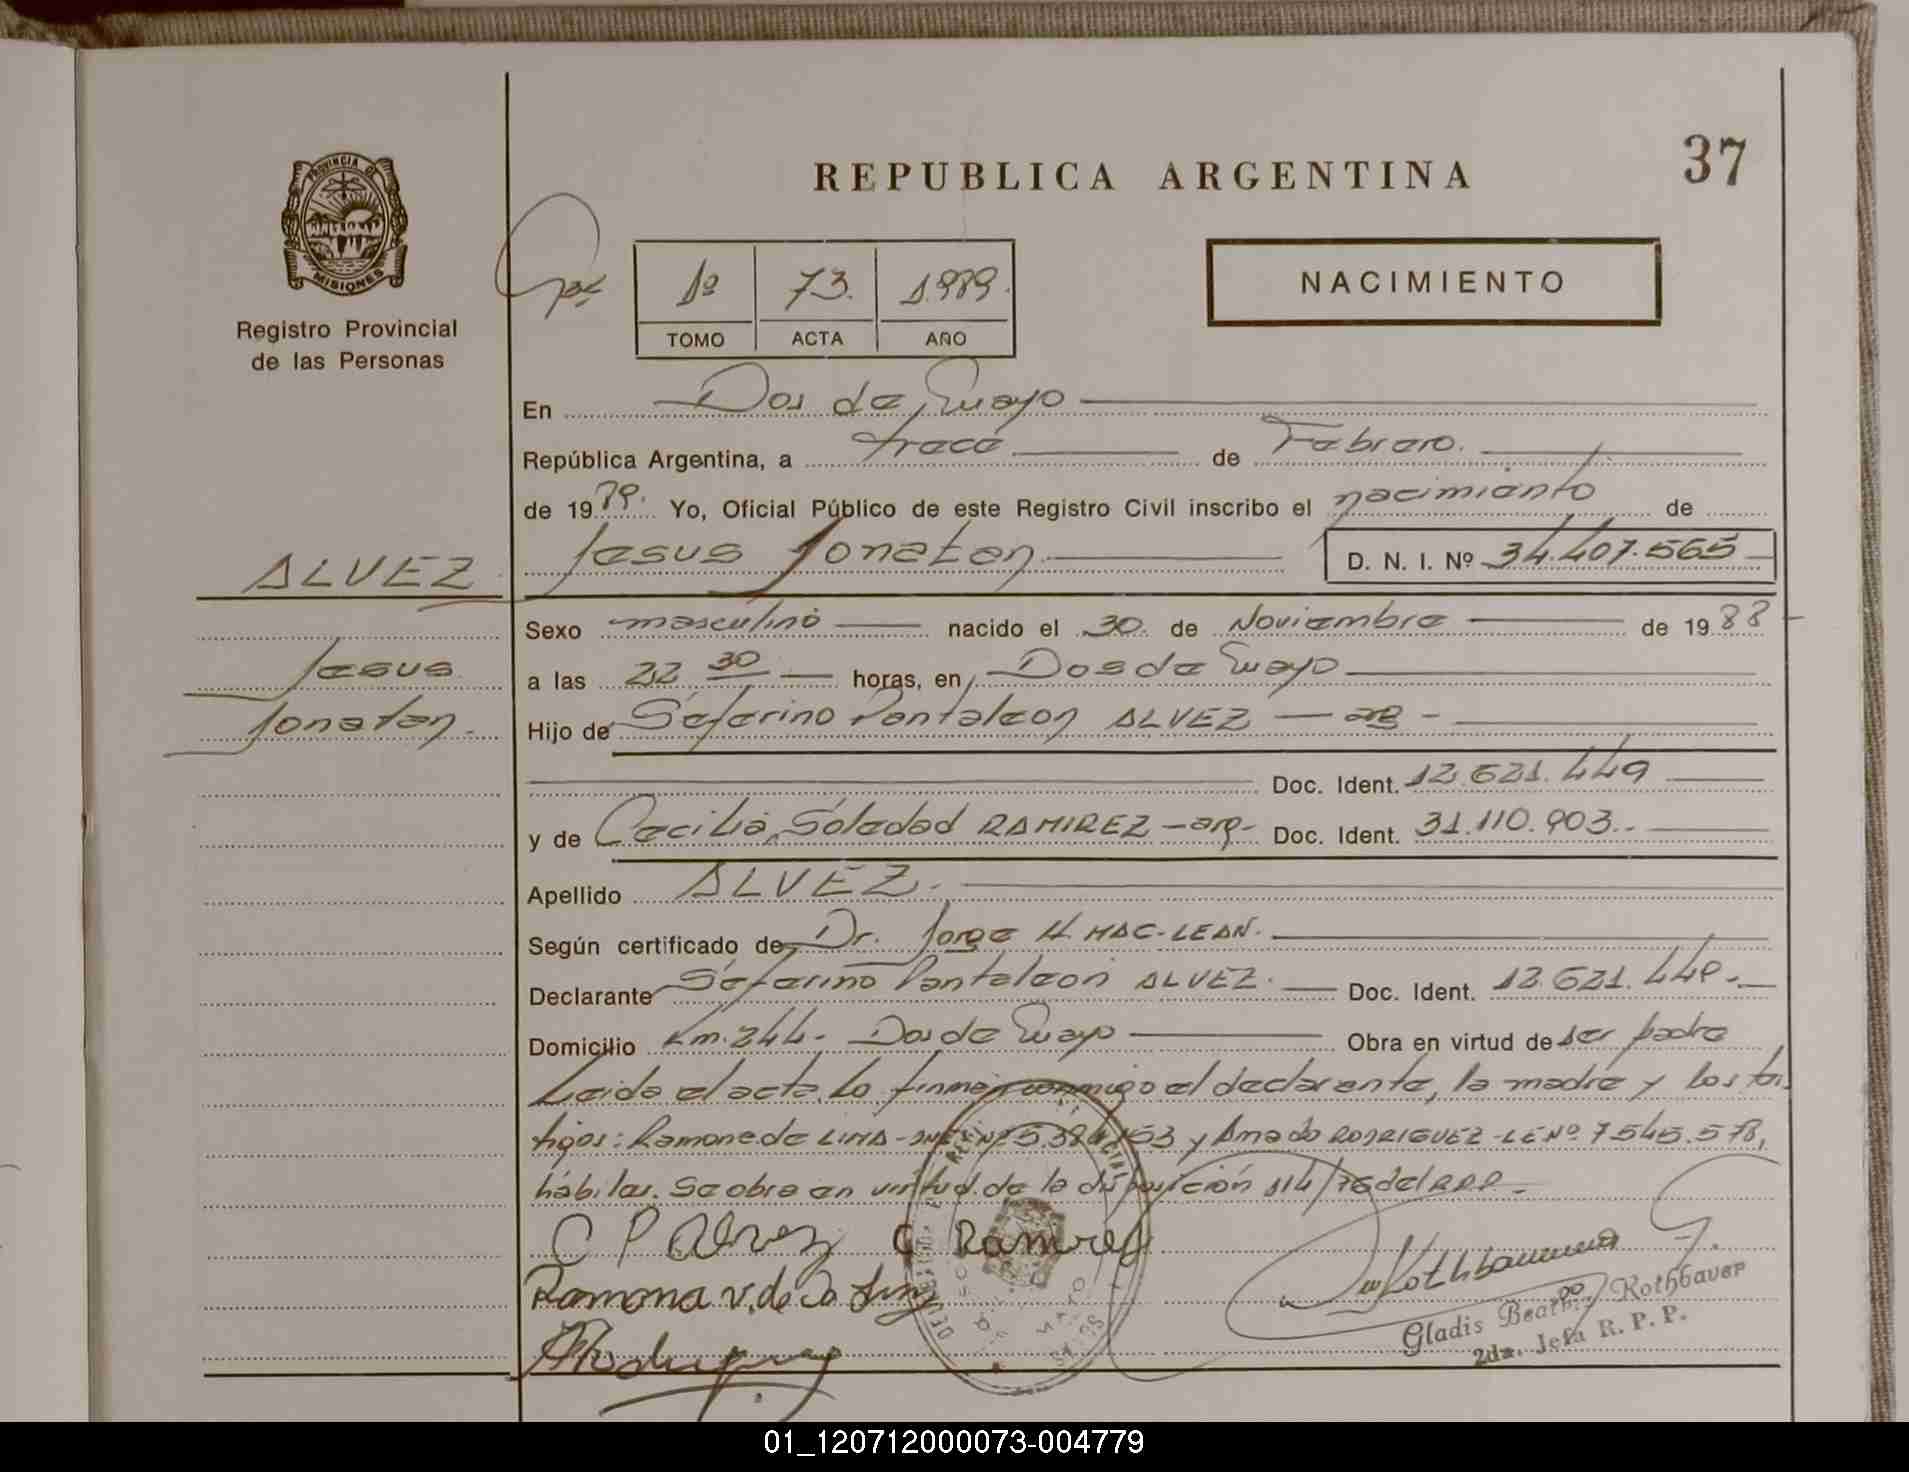 REPUBLICA ARGENTINA
37
PROVINCIA DE
MISIONES
Registro Provincial
de las Personas
1º 73. 1.989.
TOMO ACTA AÑO
NACIMIENTO
En Dos de Mayo
República Argentina, a trece de Febrero.
de 1989. Yo, Oficial Público de este Registro Civil inscribo el nacimiento de
ALVEZ
Jesus Jonatan D. N. I. Nº 34.407.565
Sexo masculino nacido el 30. de Noviembre de 1988
Jesus
a las 22 30 horas, en Dos de Mayo
Jonatan.
Hijo de Seferino Pantaleon ALVEZ - arg -
Doc. Ident. 12.621.449
y de Cecilia Soledad RAMIREZ - arg - Doc. Ident. 31.110.903.-
Apellido ALVEZ.
Según certificado de Dr. Jorge H. MAC-LEAN.
Declarante Seferino Pantaleon ALVEZ. Doc. Ident. 12.621.449.-
Domicilio Km. 244- Dos de Mayo Obra en virtud de ser padre
Leida el acta. La firman conmigo el declarante, la madre y los tes
tigos: Ramona de LIMA - Nº 5.384.153 y Amado RODRIGUEZ - LE Nº 7545.578,
hábiles. Se obra en virtud de la disposición 114/76 del RPP.-
C P Alvez C Ramirez
Ramona v. de Da
Rodriguez
Rothbauer G.
Gladis Beatriz Rothbauer
2da. Jefa R. P. P.
01_120712000073-004779